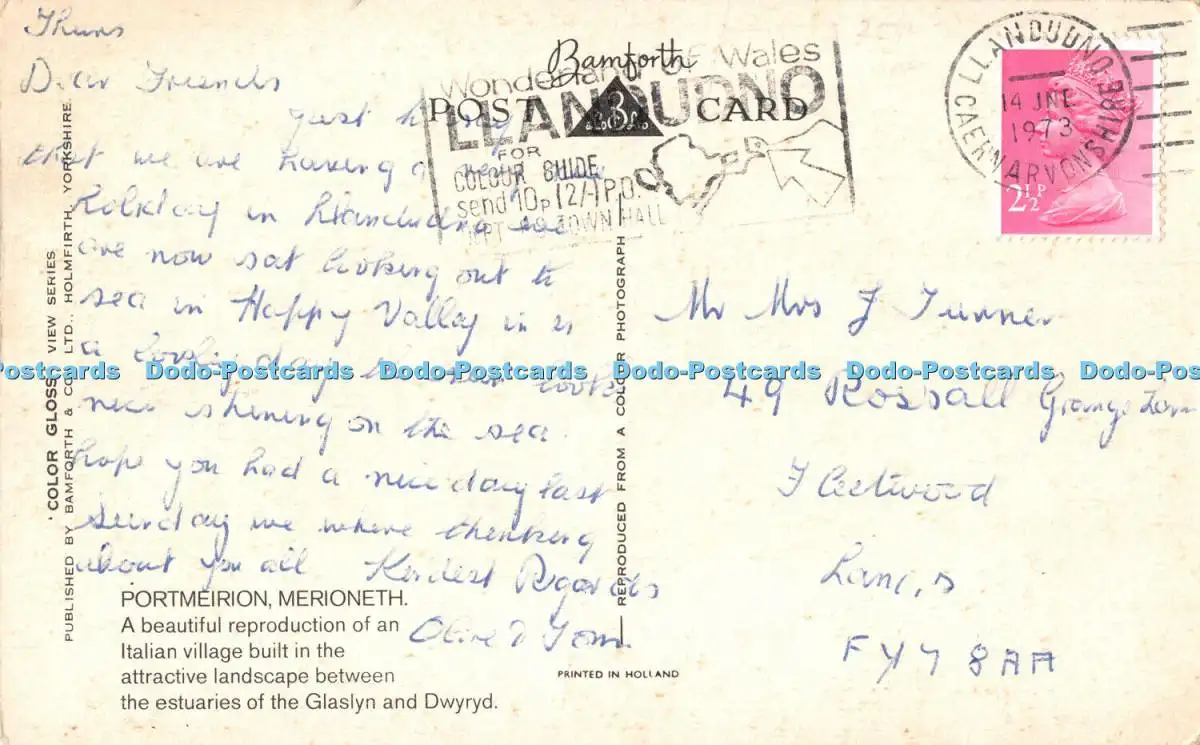 Thurs
Dear Friends
Just
that we are having a
Holiday in Llandudno we
are now sat looking out to
sea in Happy Valley in is
a lovely day looks
nice shining on the sea.
hope you had a nice day last
Sunday we where thinking
about you all Kindest Regards
Olive & Tom.
PORTMEIRION, MERIONETH.
A beautiful reproduction of an
Italian village built in the
attractive landscape between
the estuaries of the Glaslyn and Dwyryd.
'COLOR GLOSS' VIEW SERIES
PUBLISHED BY BAMFORTH & CO. LTD., HOLMFIRTH, YORKSHIRE.
Bamforth
POST CARD
B
Wonderland OF Wales
LLANDUDNO
FOR
COLOUR GUIDE
send 10p 12/-1 P.D.
TOWN HALL
REPRODUCED FROM A COLOR PHOTOGRAPH
PRINTED IN HOLLAND
LLANDUDNO
14 JNE
1973
CAERNARVONSHIRE
2½P
Mr Mrs J Turner
49 Rossall Grange
Fleetwood
Lancs
FY7 8AA
Dodo-Postcards Dodo-Postcards Dodo-Postcards Dodo-Postcards Dodo-Postcards